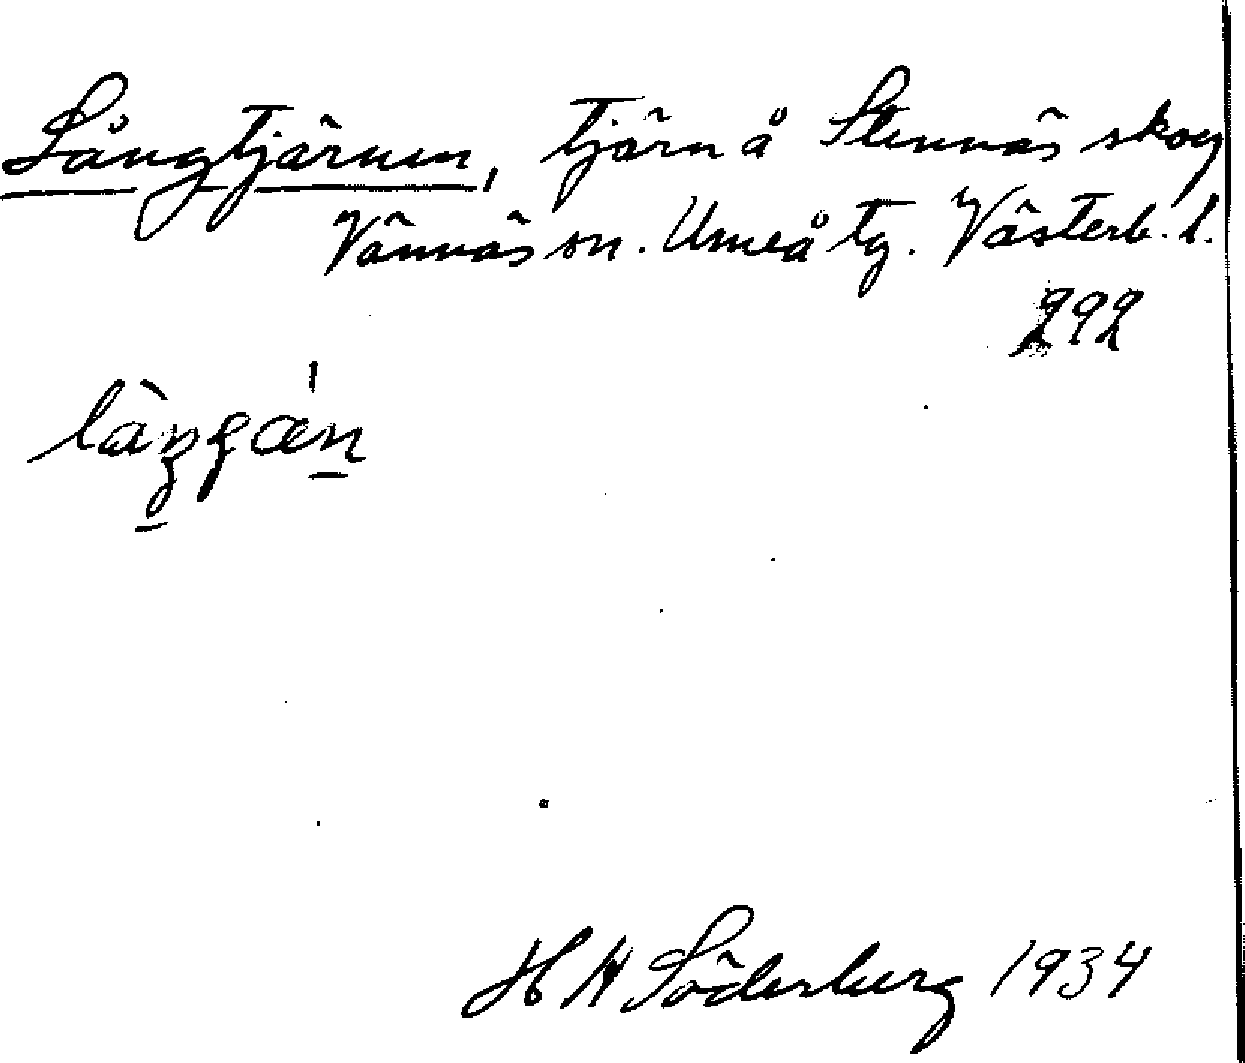 Långtjärnen, tjärn å Stennäs skog
Vännäs sn. Umeå tg. Västerb. l.
292
H W Söderberg 1934